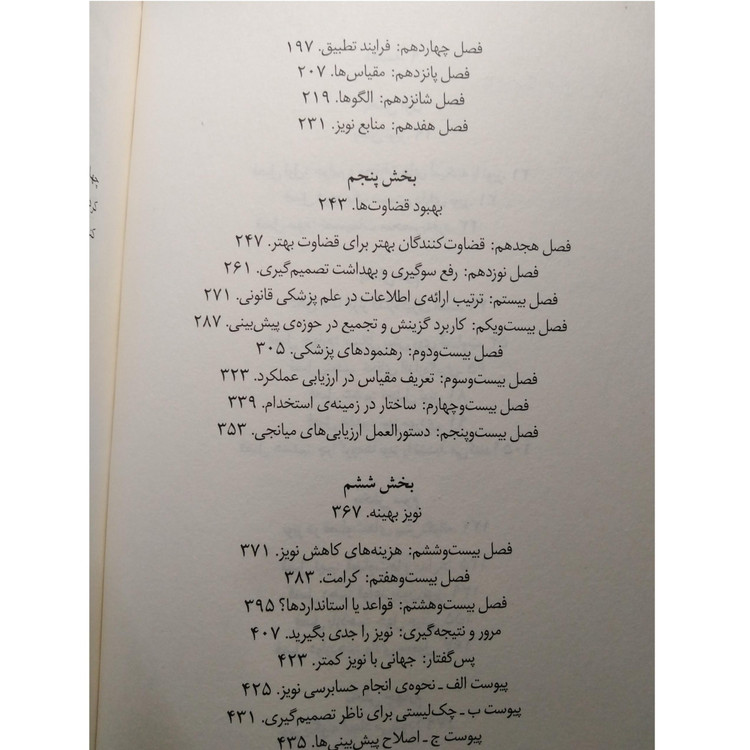 فصل چهاردهم: فرایند تطبیق. ۱۹۷
فصل پانزدهم: مقیاس‌ها. ۲۰۷
فصل شانزدهم: الگوها. ۲۱۹
فصل هفدهم: منابع نویز. ۲۳۱
بخش پنجم
بهبود قضاوت‌ها. ۲۴۳
فصل هجدهم: قضاوت‌کنندگان بهتر برای قضاوت بهتر. ۲۴۷
فصل نوزدهم: رفع سوگیری و بهداشت تصمیم‌گیری. ۲۶۱
فصل بیستم: ترتیب ارائه‌ی اطلاعات در علم پزشکی قانونی. ۲۷۱
فصل بیست‌ویکم: کاربرد گزینش و تجمیع در حوزه‌ی پیش‌بینی. ۲۸۷
فصل بیست‌ودوم: رهنمودهای پزشکی. ۳۰۵
فصل بیست‌وسوم: تعریف مقیاس در ارزیابی عملکرد. ۳۲۳
فصل بیست‌وچهارم: ساختار در زمینه‌ی استخدام. ۳۳۹
فصل بیست‌وپنجم: دستورالعمل ارزیابی‌های میانجی. ۳۵۳
بخش ششم
نویز بهینه. ۳۶۷
فصل بیست‌وششم: هزینه‌های کاهش نویز. ۳۷۱
فصل بیست‌وهفتم: کرامت. ۳۸۳
فصل بیست‌وهشتم: قواعد یا استانداردها؟ ۳۹۵
مرور و نتیجه‌گیری: نویز را جدی بگیرید. ۴۰۷
پس‌گفتار: جهانی با نویز کمتر. ۴۲۳
پیوست الف ـ نحوه‌ی انجام حسابرسی نویز. ۴۲۵
پیوست ب ـ چک‌لیستی برای ناظر تصمیم‌گیری. ۴۳۱
پیوست ج ـ اصلاح پیش‌بینی‌ها. ۴۳۵